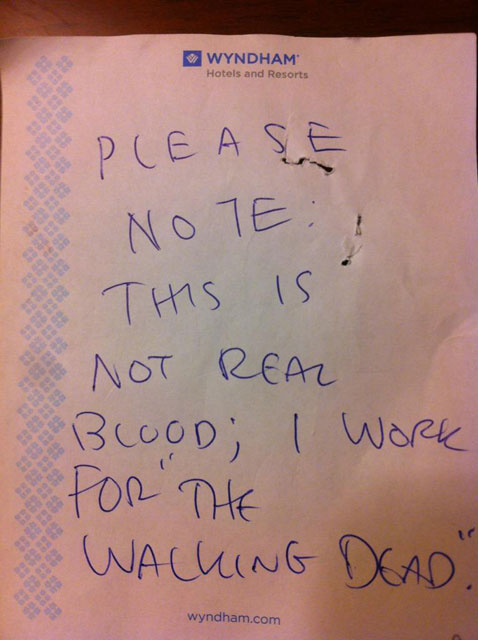 WYNDHAM
Hotels and Resorts
PLEASE
NOTE:
THIS IS
NOT REAL
BLOOD; I WORK
FOR "THE
WALKING DEAD".
wyndham.com